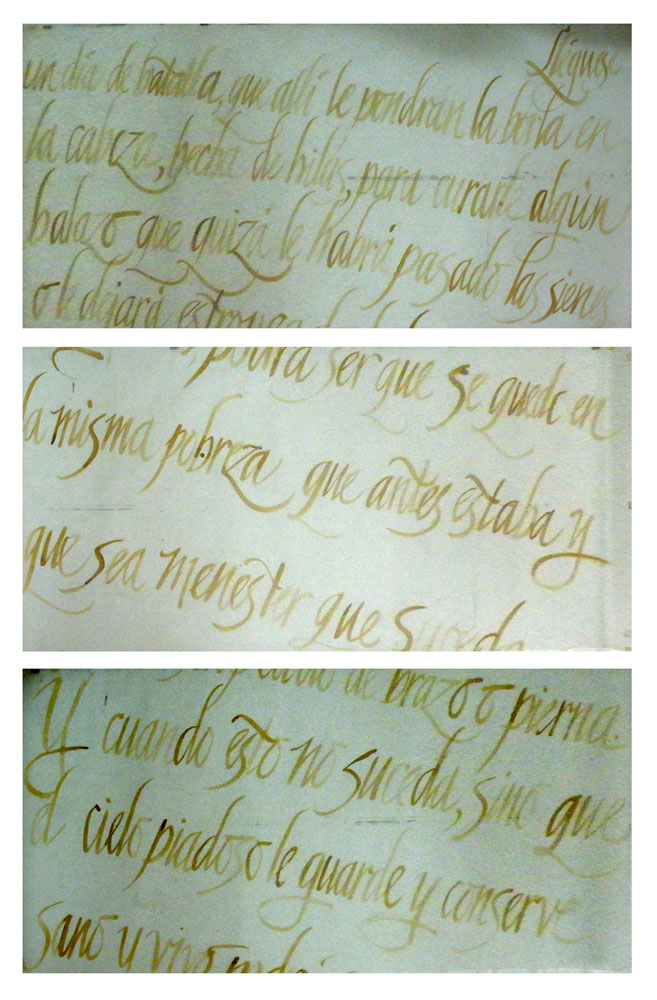 Lléguese
un día de batalla, que allí le pondrán la borla en
la cabeza, hecha de hilas, para curarle algún
balazo que quizá le habrá pasado las sienes
o le dejará
podrá ser que se quede en
la misma pobreza que antes estaba y
que sea menester que suceda
de brazo o pierna.
Y cuando esto no suceda, sino que
el cielo piadoso le guarde y conserve
sano y vivo